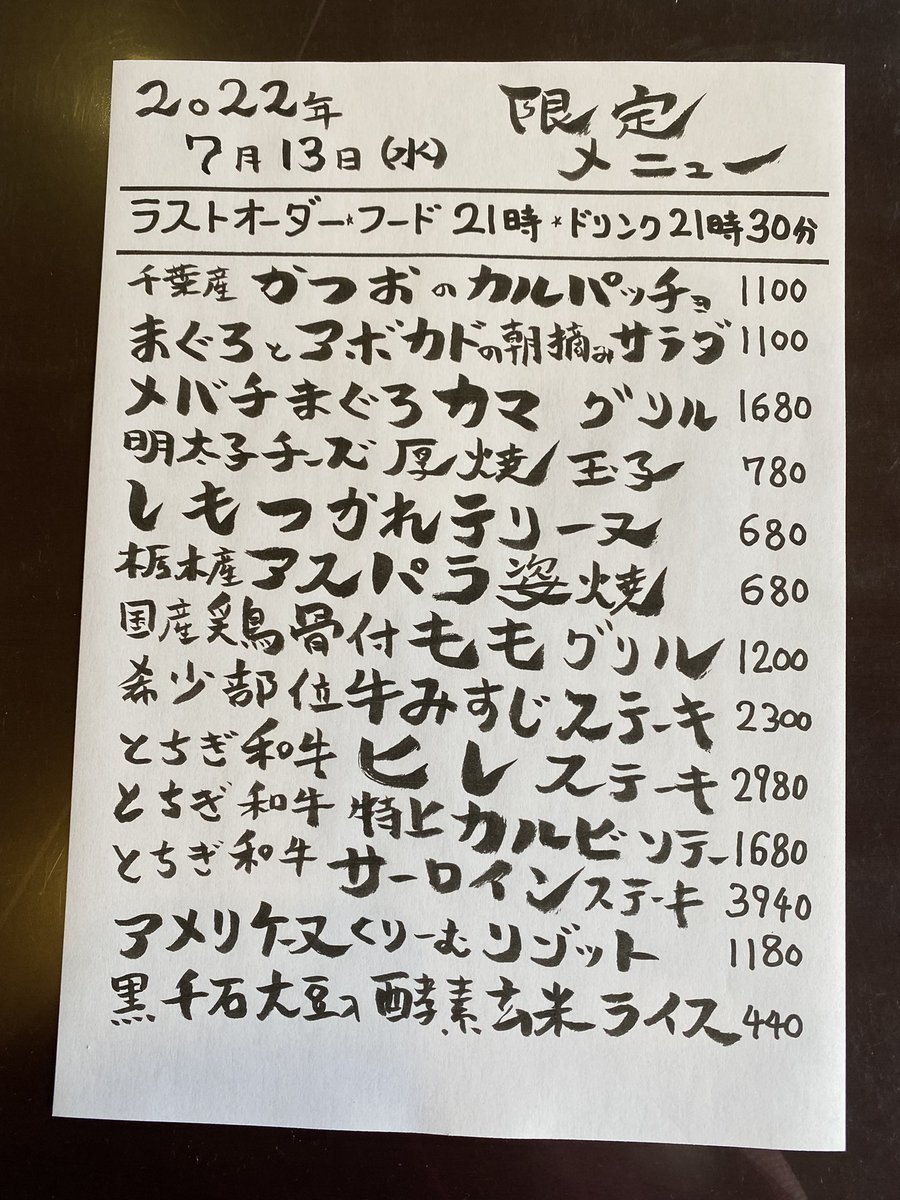 2022年 限定
7月13日(水) メニュー
ラストオーダー*フード 21時 * ドリンク21時30分
千葉産 かつおのカルパッチョ 1100
まぐろとアボカドの朝摘みサラダ 1100
メバチまぐろカマ グリル 1680
明太子チーズ厚焼玉子 780
しもつかれテリーヌ 680
栃木産アスパラ姿焼 680
国産鶏骨付ももグリル 1200
希少部位牛みすじステーキ 2300
とちぎ和牛 ヒレステーキ 2980
とちぎ和牛 特上カルビソテー 1680
とちぎ和牛 サーロインステーキ 3940
アメリケーヌくりーむリゾット 1180
黒千石大豆入酵素玄米ライス 440